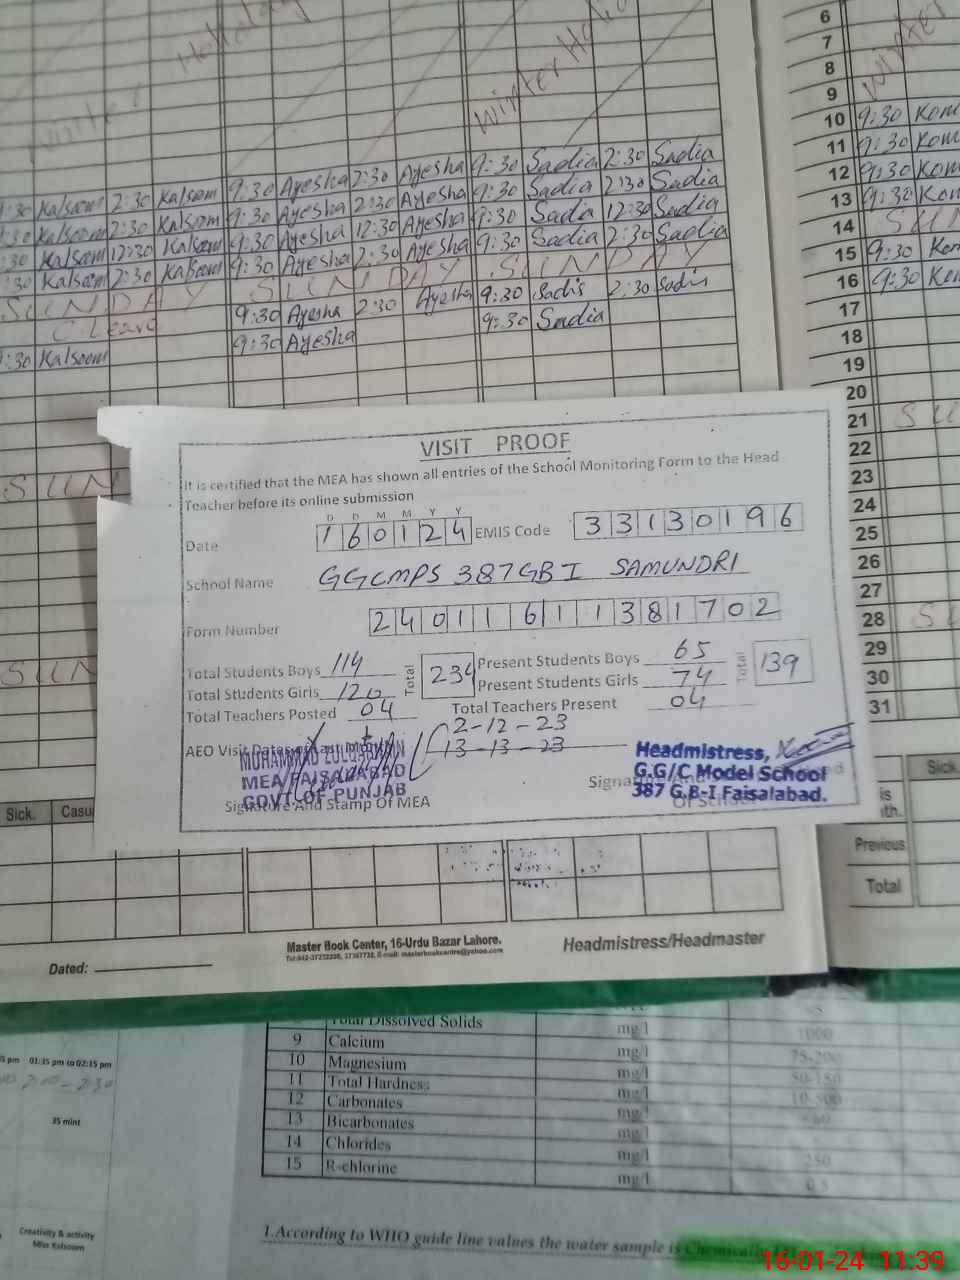 Winter Holiday
Winter Holi
Winter
6
7
8
9
10 9:30 Kom
11 9:30 Kom
12 9:30 Kom
13 9:30 Kom
14 SUN
15 9:30 Kom
16 9:30 Kom
17
18
19
20
21 SU
22
23
24
25
26
27
28 SU
29
30
31
:30 Kalsoom 2:30 Kalsoom 9:30 Ayesha 2:30 Ayesha 9:30 Sadia 2:30 Sadia
:30 Kalsoom 2:30 Kalsoom 9:30 Ayesha 2:30 Ayesha 9:30 Sadia 2:30 Sadia
:30 Kalsoom 12:30 Kalsoom 9:30 Ayesha 12:30 Ayesha 9:30 Sadia 12:30 Sadia
:30 Kalsoom 2:30 Kalsoom 9:30 Ayesha 2:30 Ayesha 9:30 Sadia 2:30 Sadia
SUNDAY SUNDAY SUNDAY
C Leave 9:30 Ayesha 2:30 Ayesha 9:30 Sadia 2:30 Sadia
:30 Kalsoom 9:30 Ayesha 9:30 Sadia
SUN
SUN
VISIT PROOF
It is certified that the MEA has shown all entries of the School Monitoring Form to the Head
Teacher before its online submission
D D M M Y Y
Date 160124 EMIS Code 33130196
School Name GGCMPS 387GB I SAMUNDRI
Form Number 24011611381702
Total Students Boys 114 Total 234 Present Students Boys 65 Total 139
Total Students Girls 120 Present Students Girls 74
Total Teachers Posted 04 Total Teachers Present 04
AEO Visit Dates of Last Month 2-12-23
13-13-23
MUHAMMAD ZULQARNAIN
MEA FAISALABAD
GOVT. OF PUNJAB
Signature And Stamp Of MEA
Headmistress,
G.G/C Model School
387 G.B-I Faisalabad.
Signature And
Of School
Sick. Casu
Sick.
is
ith.
Previous
Total
Dated:
Master Book Center, 16-Urdu Bazar Lahore.
Headmistress/Headmaster
Total Dissolved Solids mg/l 1000
9 Calcium mg/l 75-200
10 Magnesium mg/l 50-150
11 Total Hardness mg/l
12 Carbonates mg/l
13 Bicarbonates mg/l
14 Chlorides mg/l 250
15 R-chlorine mg/l 0.5
pm 01:35 pm to 02:15 pm
2:00-2:30
35 mint
Creativity & activity
Miss Kalsoom
1.According to WHO guide line values the water sample is Chemically
16-01-24 11:39